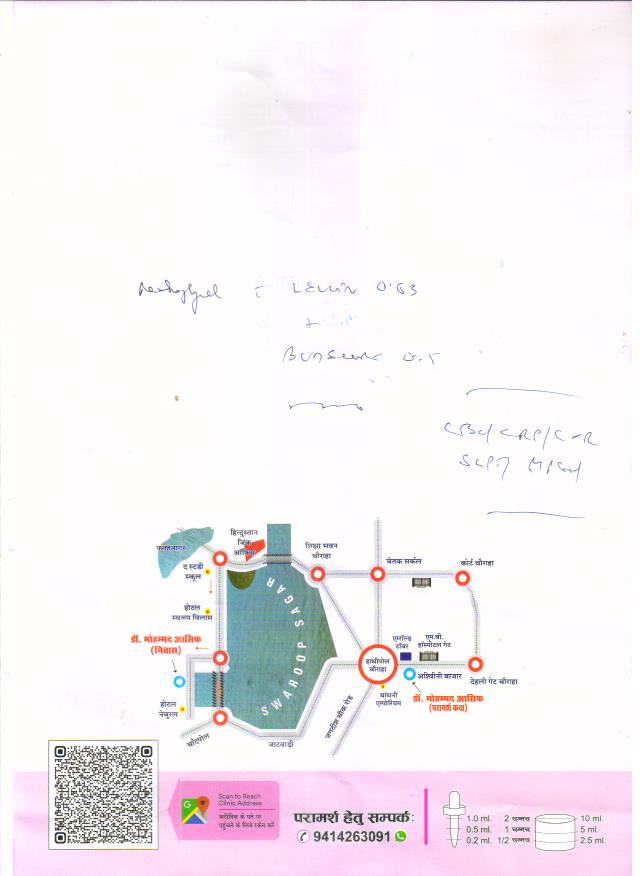 LEUIN 0.63
CBC/CRP/
SWAROOP SAGAR
फतहसागर
हिन्दुस्तान
जिंक
ऑफिस
लिशा भवन
चौराहा
चेतक सर्कल
कोर्ट चौराहा
द स्टडी
स्कूल
होटल
स्वरूप विलास
डॉ. मोहम्मद आसिफ
(निवास)
होटल
नेचुरल
चाँदपोल
जाटवाड़ी
जगदीश चौक रोड
हाथीपोल
चौराहा
एमरॉल्ड
टॉवर
एम.बी.
हॉस्पीटल गेट
अश्विनी बाजार
देहली गेट चौराहा
बांधनी
एम्पोरियम
डॉ. मोहम्मद आसिफ
(परामर्श कक्ष)
Scan to Reach
Clinic Address
क्लीनिक के पते पर
पहुँचने के लिये स्कैन करें
परामर्श हेतु सम्पर्क:
9414263091
1.0 ml. 2 चम्मच 10 ml.
0.5 ml. 1 चम्मच 5 ml.
0.2 ml. 1/2 चम्मच 2.5 ml.